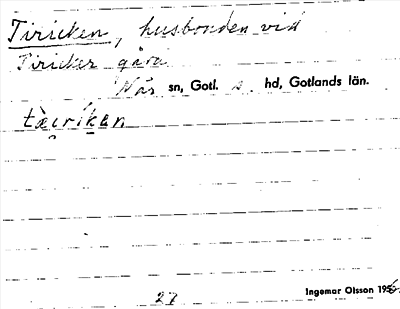 Tiricken, husbonden vid
Tiricker gård
När sn, Gotl. s. hd, Gotlands län.
tæ̀iríkən
27
Ingemar Olsson 1956.